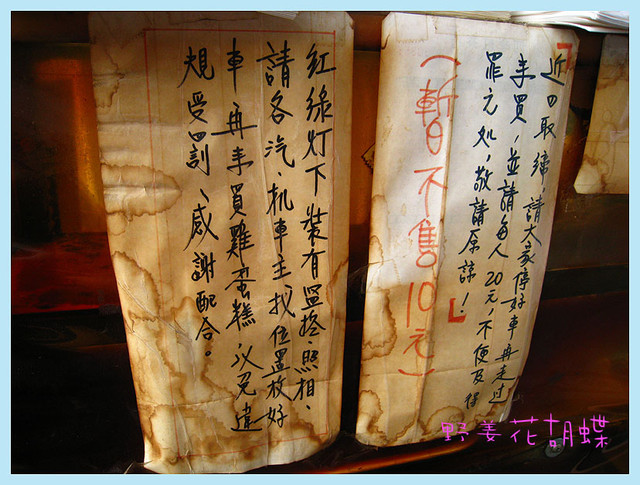 近日取締,請大家停好車再走过
来買,並請每人20元,不便及得
罪之处,敬請原諒!
(暫不售10元)
红綠灯下裝有監控照相、
請各汽、机車主找位置放好
車再来買雞蛋糕,以免違
規受罰、感謝配合。
野姜花胡蝶